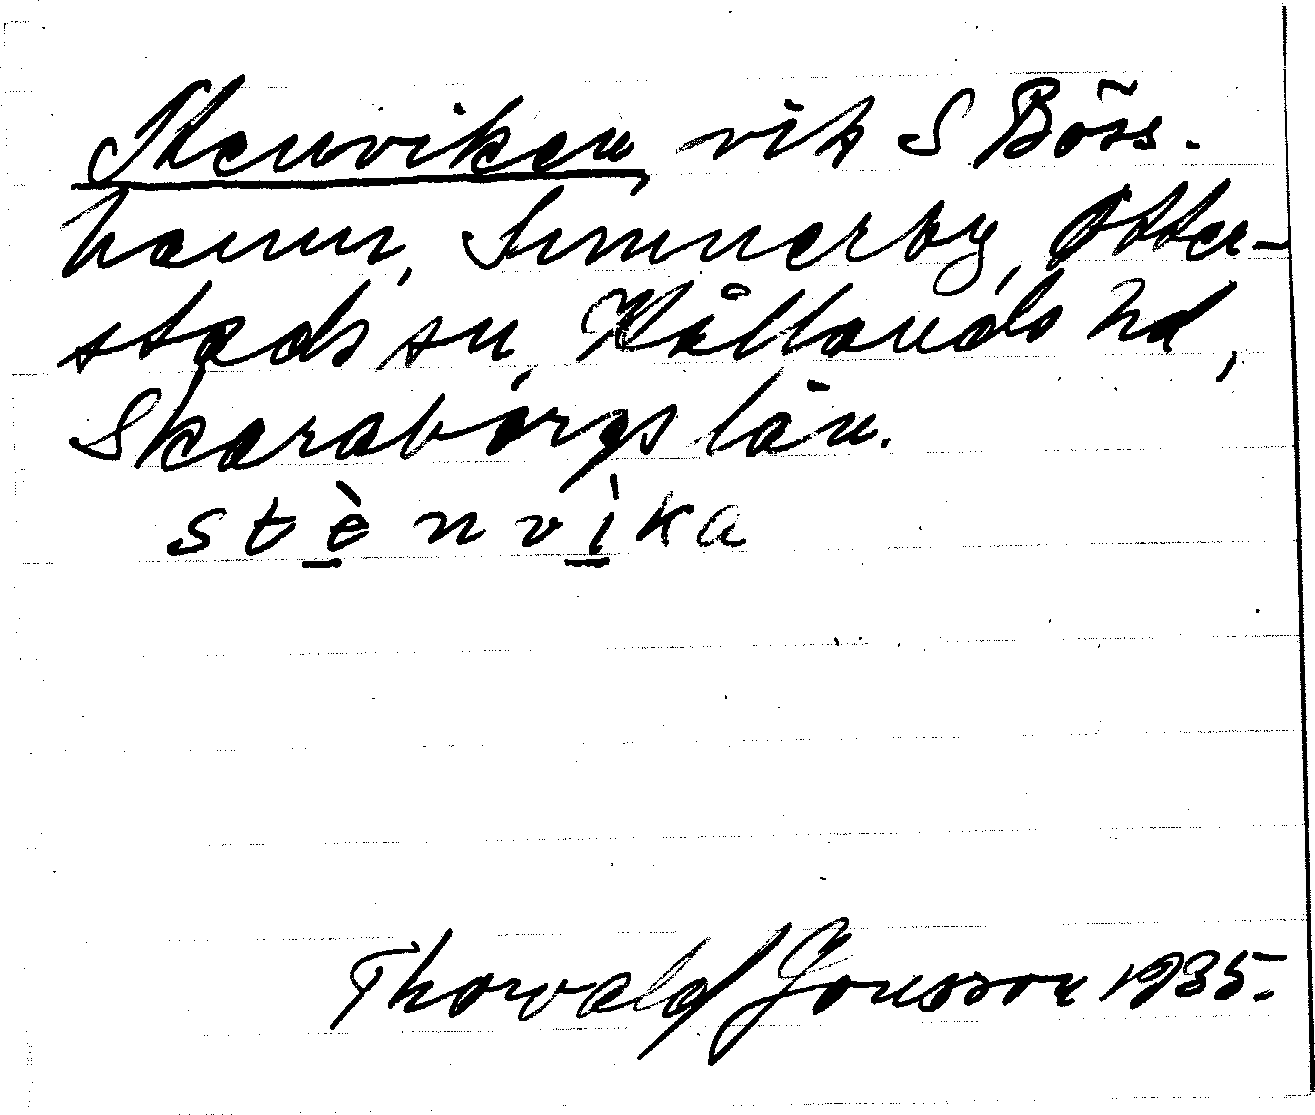 Stenviken, vik S Böss-
hamn, Sunnerby, Otter-
stads sn, Kållands hd,
Skaraborgs län.
stènvìka
Thorvald Jonsson 1935.